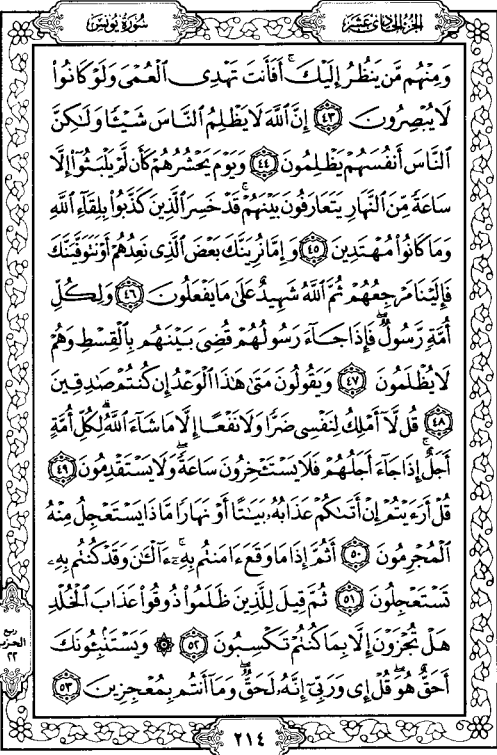 الجزء الحادي عشر
سورة يونس
وَمِنْهُم مَّن يَنظُرُ إِلَيْكَ ۚ أَفَأَنتَ تَهْدِى الْعُمْىَ وَلَوْ كَانُوا۟
لَا يُبْصِرُونَ ٤٣ إِنَّ اللَّهَ لَا يَظْلِمُ النَّاسَ شَيْـًٔا وَلَـٰكِنَّ
النَّاسَ أَنفُسَهُمْ يَظْلِمُونَ ٤٤ وَيَوْمَ يَحْشُرُهُمْ كَأَن لَّمْ يَلْبَثُوٓا۟ إِلَّا
سَاعَةً مِّنَ النَّهَارِ يَتَعَارَفُونَ بَيْنَهُمْ ۚ قَدْ خَسِرَ الَّذِينَ كَذَّبُوا۟ بِلِقَآءِ اللَّهِ
وَمَا كَانُوا۟ مُهْتَدِينَ ٤٥ وَإِمَّا نُرِيَنَّكَ بَعْضَ الَّذِى نَعِدُهُمْ أَوْ نَتَوَفَّيَنَّكَ
فَإِلَيْنَا مَرْجِعُهُمْ ثُمَّ اللَّهُ شَهِيدٌ عَلَىٰ مَا يَفْعَلُونَ ٤٦ وَلِكُلِّ
أُمَّةٍ رَّسُولٌ ۖ فَإِذَا جَآءَ رَسُولُهُمْ قُضِىَ بَيْنَهُم بِالْقِسْطِ وَهُمْ
لَا يُظْلَمُونَ ٤٧ وَيَقُولُونَ مَتَىٰ هَـٰذَا الْوَعْدُ إِن كُنتُمْ صَـٰدِقِينَ
٤٨ قُل لَّآ أَمْلِكُ لِنَفْسِى ضَرًّا وَلَا نَفْعًا إِلَّا مَا شَآءَ اللَّهُ ۗ لِكُلِّ أُمَّةٍ
أَجَلٌ ۚ إِذَا جَآءَ أَجَلُهُمْ فَلَا يَسْتَـْٔخِرُونَ سَاعَةً ۖ وَلَا يَسْتَقْدِمُونَ ٤٩
قُلْ أَرَءَيْتُمْ إِنْ أَتَىٰكُمْ عَذَابُهُۥ بَيَـٰتًا أَوْ نَهَارًا مَّاذَا يَسْتَعْجِلُ مِنْهُ
الْمُجْرِمُونَ ٥٠ أَثُمَّ إِذَا مَا وَقَعَ ءَامَنتُم بِهِۦٓ ۚ ءَآلْـَٔـٰنَ وَقَدْ كُنتُم بِهِۦ
تَسْتَعْجِلُونَ ٥١ ثُمَّ قِيلَ لِلَّذِينَ ظَلَمُوا۟ ذُوقُوا۟ عَذَابَ الْخُلْدِ
هَلْ تُجْزَوْنَ إِلَّا بِمَا كُنتُمْ تَكْسِبُونَ ٥٢ ۞ وَيَسْتَنۢبِـُٔونَكَ
أَحَقٌّ هُوَ ۖ قُلْ إِى وَرَبِّىٓ إِنَّهُۥ لَحَقٌّ ۖ وَمَآ أَنتُم بِمُعْجِزِينَ ٥٣
ربع
الحزب
٢٢
٢١٤